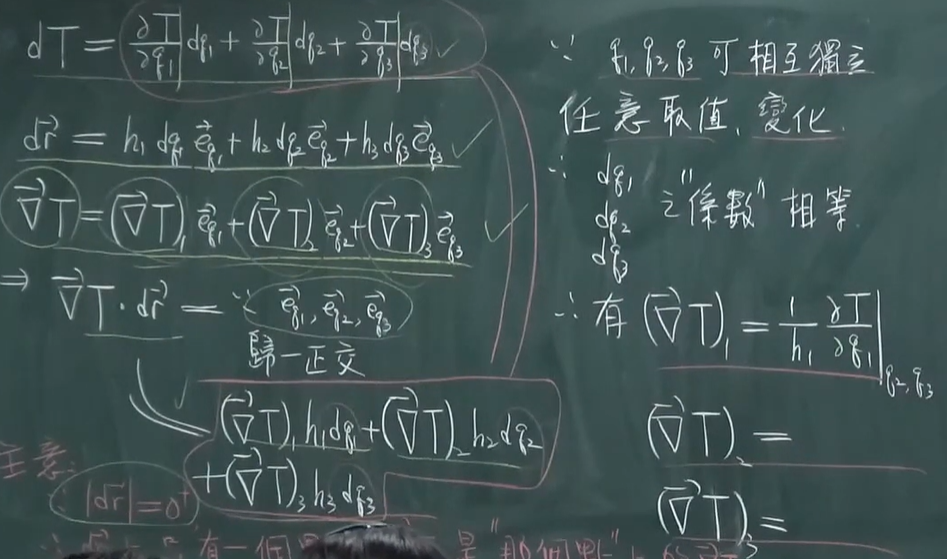 dT = ∂T/∂q₁| dq₁ + ∂T/∂q₂| dq₂ + ∂T/∂q₃| dq₃ ✓
dr⃗ = h₁ dq₁ e⃗_q₁ + h₂ dq₂ e⃗_q₂ + h₃ dq₃ e⃗_q₃ ✓
∇⃗T = (∇⃗T)₁ e⃗_q₁ + (∇⃗T)₂ e⃗_q₂ + (∇⃗T)₃ e⃗_q₃ ✓
⇒ ∇⃗T · dr⃗ = ∵ e⃗_q₁, e⃗_q₂, e⃗_q₃
歸一正交
✓ (∇⃗T)₁ h₁dq₁ + (∇⃗T)₂ h₂dq₂
+ (∇⃗T)₃ h₃dq₃
任意
|dr⃗| = 0⁺
有一個
是"那個
∵ q₁, q₂, q₃ 可相互獨立
任意取值、變化.
∴ dq₁
dq₂ 之"係數"相等.
dq₃
∴ 有 (∇⃗T)₁ = 1/h₁ ∂T/∂q₁|q₂,q₃
(∇⃗T)₂ =
(∇⃗T)₃ =